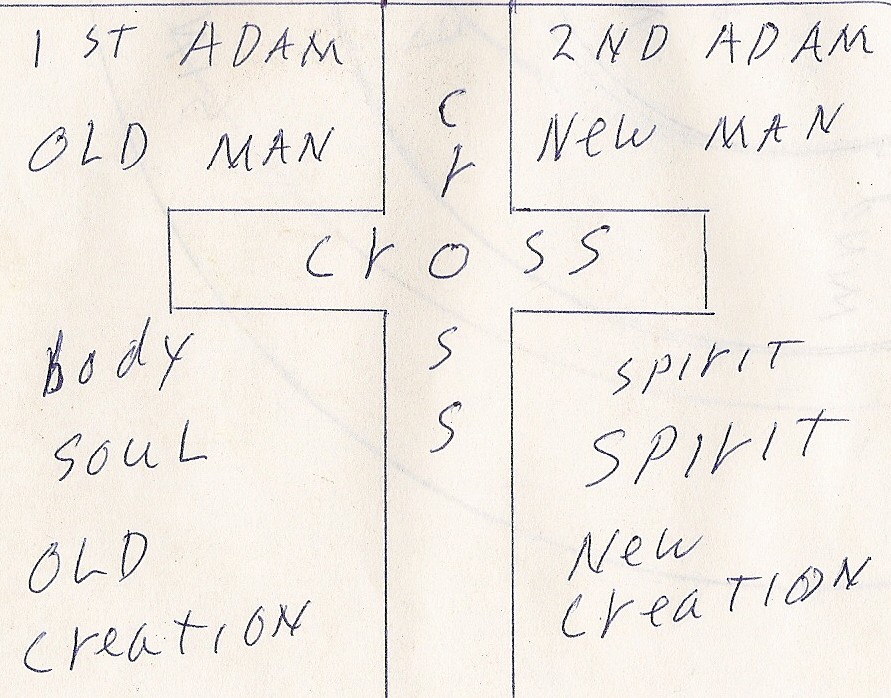 1 ST ADAM
OLD MAN
Body
SOUL
OLD
CreatION
C
r
CrOSS
S
S
2ND ADAM
New MAN
SPIrIT
SPIrIT
New
CreaTION